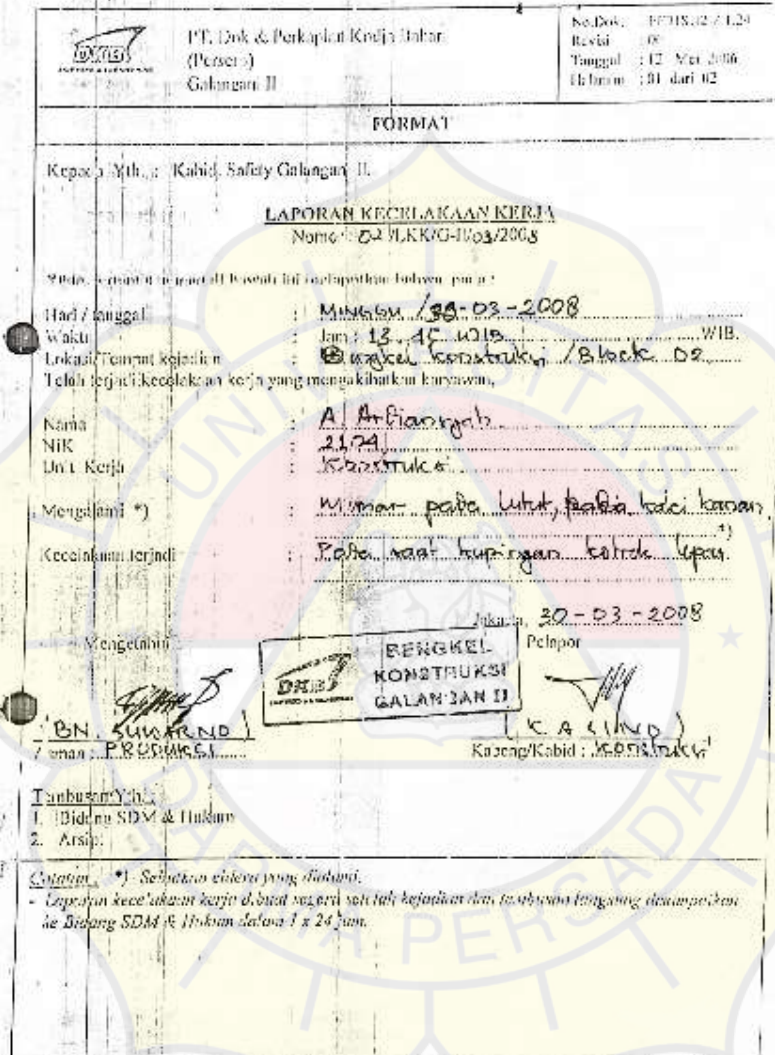 DKB
PT. Dok & Perkapalan Kodja Bahari
(Persero)
Galangan II
No.Dok.
Revisi
Tanggal : 12 Mei 2006
Halaman : 01 dari 02
FORMAT
Kepada Yth. : Kabid. Safety Galangan II.
LAPORAN KECELAKAAN KERJA
Nomor : 02 /LKK/G-II/03/2008
Hari / tanggal : MINGGU / -03-2008
Waktu : Jam : 13.45 WIB WIB.
Lokasi/Tempat kejadian : Bengkel konstruksi / Block 02
Telah terjadi kecelakaan kerja yang mengakibatkan karyawan,
Nama : A. Ardiansyah
NiK : 2174
Unit Kerja : Konstruksi
Mengalami *) : pada lutut, pada kaki kanan
*)
Kecelakaan terjadi : Pada saat
Jakarta, 30-03-2008
Mengetahui Pelapor
DKB BENGKEL
KONSTRUKSI
GALANGAN II
(BN. SUWARNO) (KASIND)
PRODUKSI Kabeng/Kabid : Konstruksi
Tembusan Yth. :
1. Bidang SDM & Hukum
2. Arsip.
Catatan : *) Sebutkan cidera yang dialami.
- Laporan kecelakaan kerja dibuat segera setelah kejadian dan tembusan langsung disampaikan
ke Bidang SDM & Hukum dalam 1 x 24 jam.
UNIVERSITAS
DARMA PERSADA